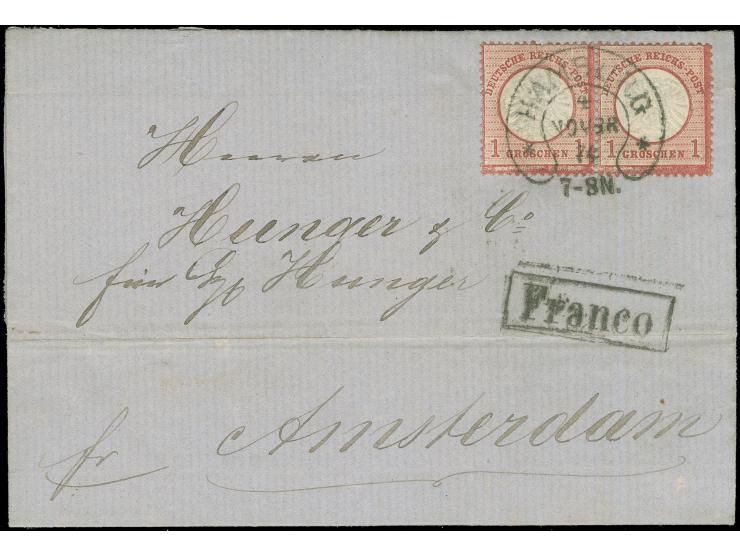 DEUTSCHE REICHS-POST DEUTSCHE REICHS-POST
1 GROSCHEN 1 1 GROSCHEN 1
HAMBURG
4
NOVBR
74
7-8N.
Herren
Hunger & Co
für Hunger
Franco
fr Amsterdam